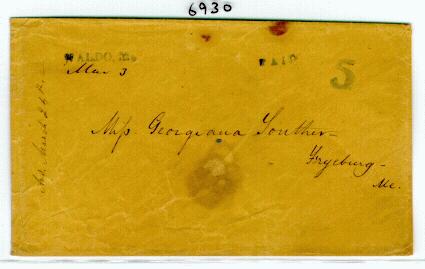 6930
WALDO, Me
PAID
5
Mar 3
Miss Georgiana Souther
Fryeburg
Me.